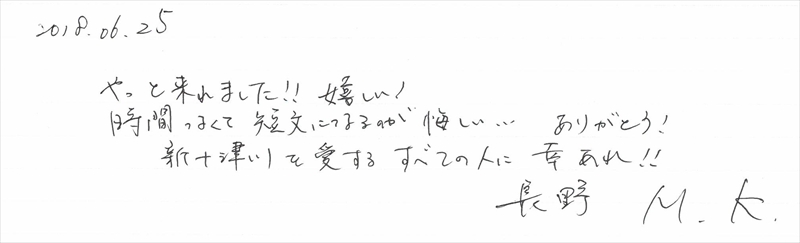 2018.06.25
やっと来れました!! 嬉しい!
時間なくて 短文になるのが 悔しい… ありがとう!
新十津川を愛する すべての人に 幸あれ!!
長野 M.K.